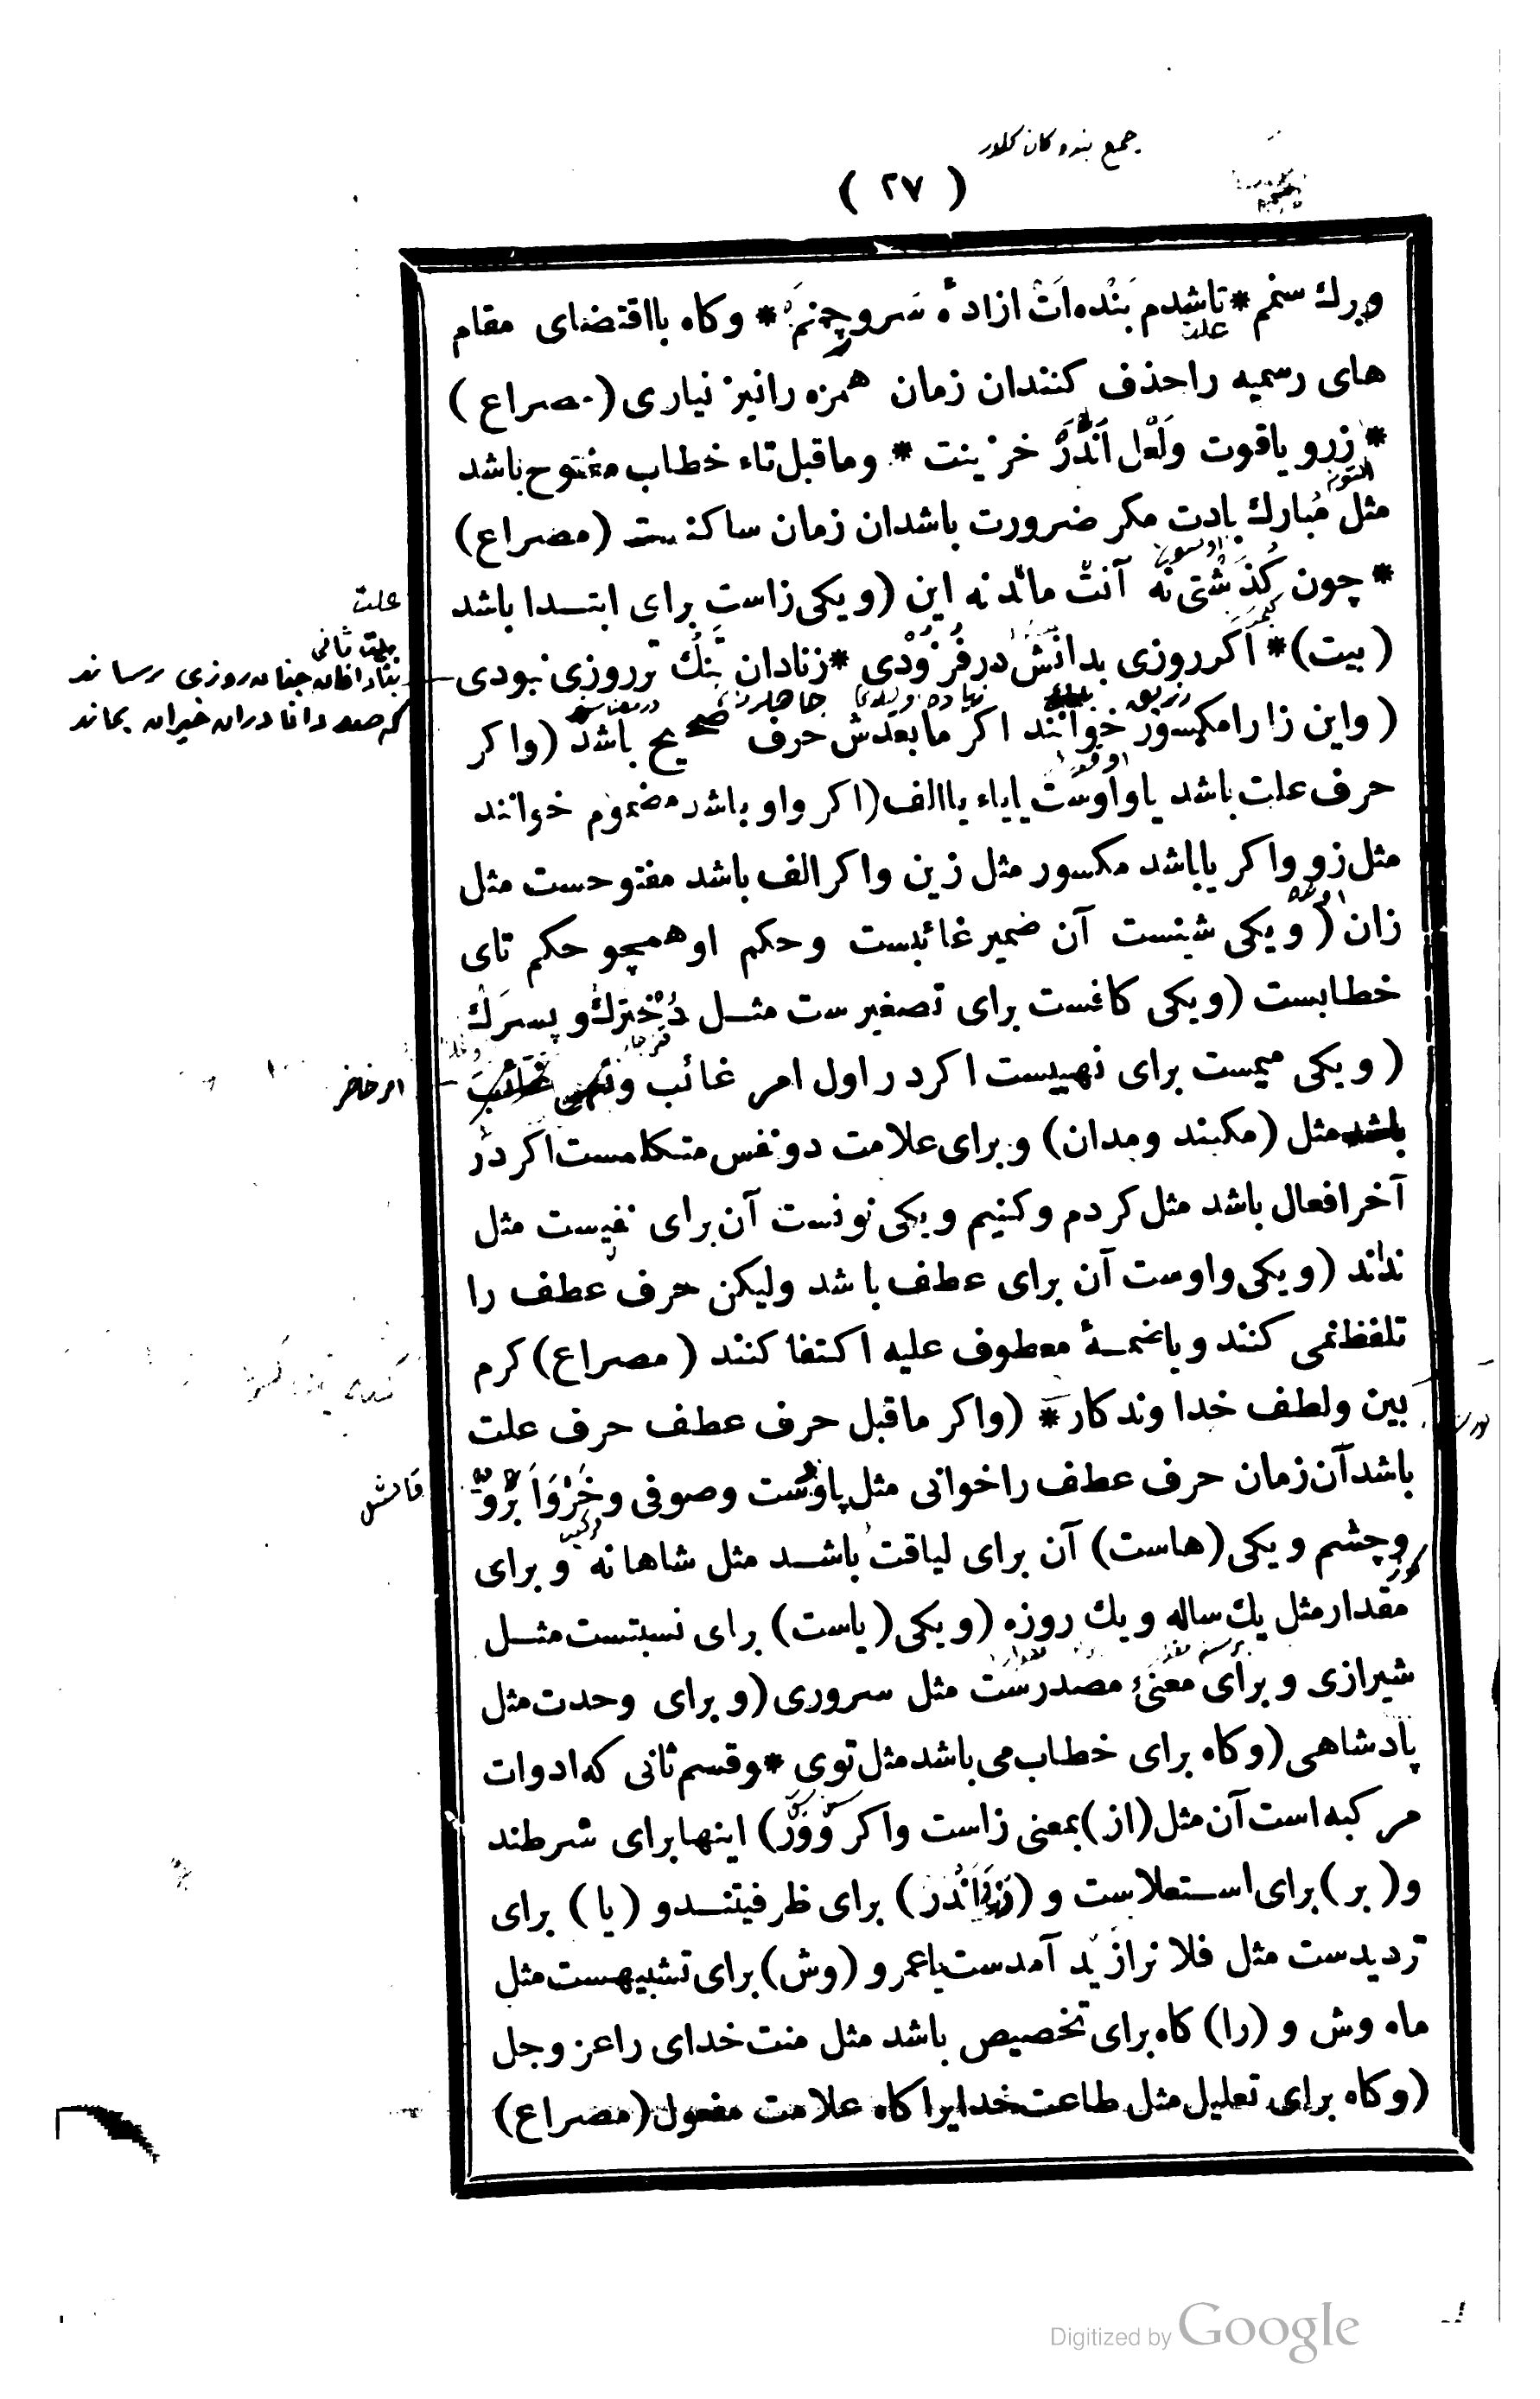 جمیع بنده کان کلور
( ۲۷ )
وبرك سنمم * تاشدم بَنْده‌اتْ ازادهٔ سَرو چِمنمَ * وكاه بااقتضای مقام
علت
های رسمیه راحذف كنندان زمان همزه رانیز نیاری (مصراع)
* زرو یاقوت وَلَعْل اَنْدَرْ خزینت * وماقبل تاء خطاب مفتوح باشد
مثل مُبارك بادت مكر ضرورت باشدان زمان ساكنست (مصراع)
* چون كُذَشْتی نَه آنتْ ماند نه این (ویكی زاست برای ابتدا باشد
علت
(بیت) * اكرروزی بدانش درفُزودی * زنادان تَنْك ترروزی نبودی
بنادانان چنان روزی رساند
كه صد دانا دران حیران بماند
(واین زا رامكسور خوانند اكر مابعدش حرف صحیح باشد (واكر
حرف علت باشد یاواوست یایاء یاالف (اكر واو باشد مضموم خوانند
مثل زو واكر یاباشد مكسور مثل زین واكر الف باشد مفتوحست مثل
زان (ویكی شینست آن ضمیر غائبست وحكم اوهمچو حكم تای
خطابست (ویكی كافست برای تصغیرست مثل دُخْترَك و پسرَك
(ویكی میمست برای نهییست اكردر اول امر غائب ونهی غائب
امر حاضر
باشد مثل (مكیند ومدان) وبرای علامت دونفس متكلمست اكر در
آخر افعال باشد مثل كردم وكنیم ویكی نونست آن برای نفیست مثل
نداند (ویكی واوست آن برای عطف باشد ولیكن حرف عطف را
تلفظ نمی كنند وباضمهٔ معطوف علیه اكتفا كنند (مصراع) كرم
بین ولطف خدا وندكار * (واكر ماقبل حرف عطف حرف علت
باشدآن زمان حرف عطف راخوانی مثل پاوست وصوفی وخَرْوَاَبْرُو
قاشش
وچشم ویكی (هاست) آن برای لیاقت باشد مثل شاهانه وبرای
مقدارمثل یك ساله ویك روزه (ویكی (یاست) برای نسبتست مثل
شیرازی وبرای معنیٔ مصدرست مثل سروری (وبرای وحدت مثل
پادشاهی (وكاه برای خطاب می باشد مثل توی * وقسم ثانی كه ادوات
مركبه است آن مثل (از) بمعنی زاست واكر ووَر) اینها برای شرطند
و (بر) برای استعلاست و ( اَنْدَر) برای ظرفیتندو (یا) برای
تردیدست مثل فلانرازید آمدست یاعمر و (وش) برای تشبیهست مثل
ماه وش و (را) كاه برای تخصیص باشد مثل منت خدای راعز وجل
(وكاه برای تعلیل مثل طاعت خدایرا كاه علامت مفعول (مصراع)
Digitized by Google